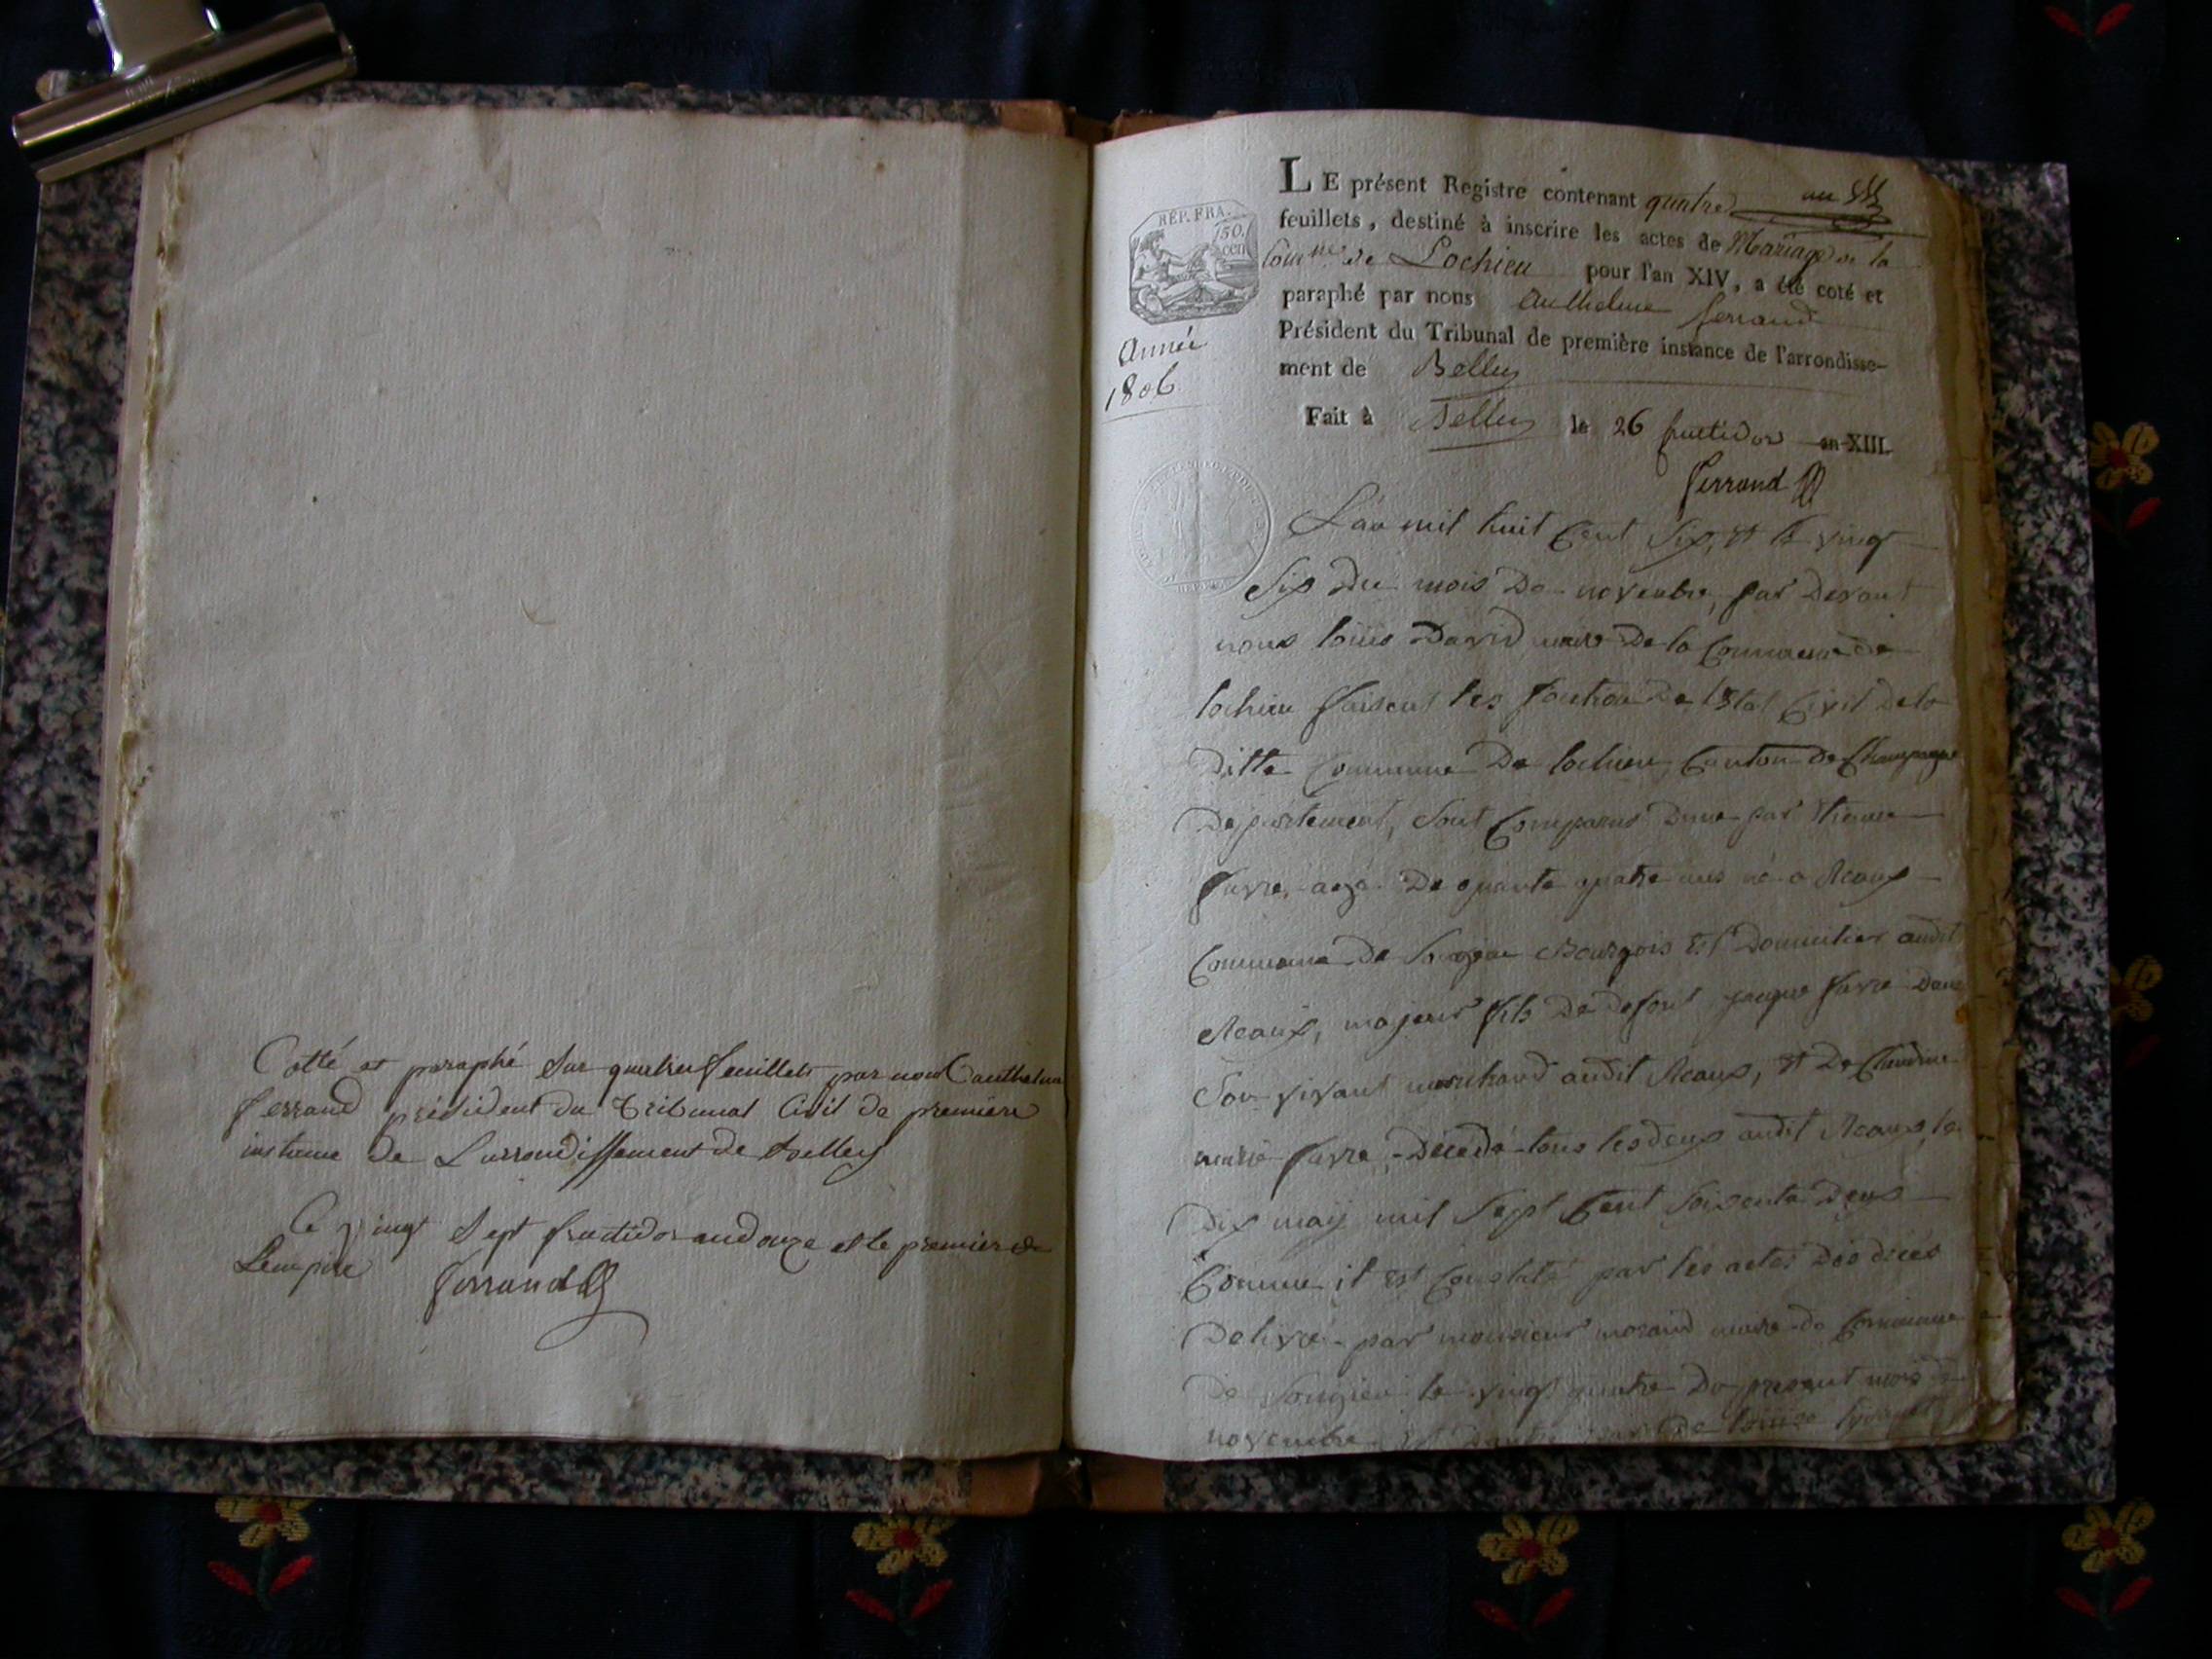 Cotté et paraphé sur quatre feuillets par nous anthelme
ferrand président du Tribunal Civil de première
instance de L'arrondissement de Belley
Ce vingt sept fructidor an douze et le premier de
L'empire
ferrand
RÉP. FRA.
50.
cen
année
1806
LE présent Registre contenant quatre
feuillets, destiné à inscrire les actes de Mariage de la
Comne de Lochieu pour l'an XIV, a été coté et
paraphé par nous Anthelme ferrand
Président du Tribunal de première instance de l'arrondisse-
ment de Belley
Fait à Belley le 26 fructidor an XIII.
ferrand
L'an mil huit Cent Six, et le vingt
Six du mois De novembre, par Devant
nous loüis David maire De la Commune de
lochieu faisant les fonction De l'Etat Civil De la
Ditte Commune De lochieu, Canton de Champagne
Departement, Sont Comparus Dune part
favre, agé De quante quatre ans né a Reaux
Commune De Songieu Bourgois Et Domicilier audit
Reaux, majeur fils De Defont jaque favre Dans
Son vivant marchand audit Reaux, et De Claudine
marie favre, Décédé tous les deux audit Reaux, le
Dix may mil Sept Cent Soisente Deux
Comme it Est Constaté par les actes
Delivré par monsieur morand maire de Commune
De Songieu le vingt quatre Du present mois De
novembre Et D'autre part De